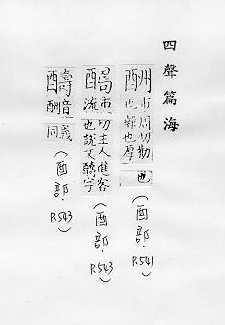 四聲篇海
酬 市周切勸也報也厚也
(酉部. P.541)
市流切主人進客也說文醻字
(酉部. P.543)
醻 音義酬同
(酉部. P.543)